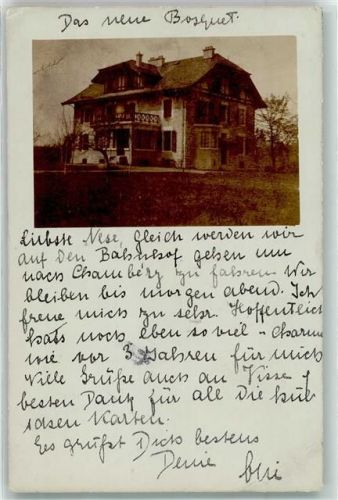 Das neue Bosquet.
Liebste Nese, gleich werden wir
auf den Bahnhof gehen um
nach Chambéry zu fahren. Wir
bleiben bis morgen abend. Ich
freue mich zu sehr. Hoffentlich
hats noch eben so viel charme
wie vor 3 Jahren für mich
Viele Grüße auch an
besten Dank für all die hüb
schen Karten.
Es grüßt Dich bestens
Deine